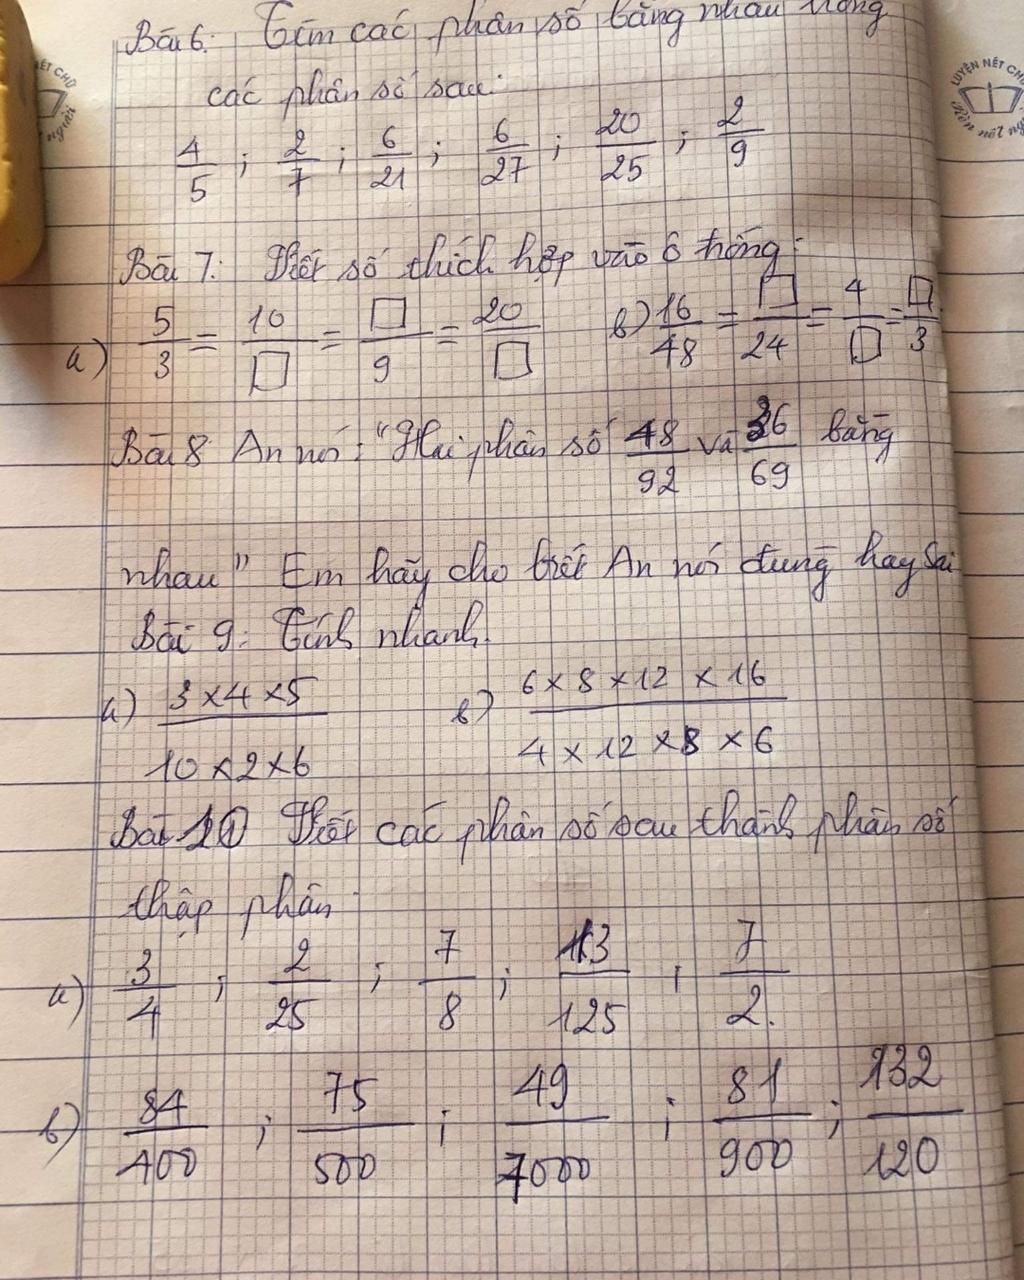 Bài 6: Tìm các phân số bằng nhau trong
các phân số sau:
4/5 ; 2/7 ; 6/21 ; 6/27 ; 20/25 ; 2/9
Bài 7: Viết số thích hợp vào ô trống:
a) 5/3 = 10/□ = □/9 = 20/□ b) 16/48 = □/24 = 4/□ = □/3
Bài 8 An nói: "Hai phân số 48/92 và 36/69 bằng
nhau" Em hãy cho biết An nói đúng hay sai
Bài 9: Tính nhanh.
a) 3 × 4 × 5 / 10 × 2 × 6 b) 6 × 8 × 12 × 16 / 4 × 12 × 8 × 6
Bài 10 Viết các phân số sau thành phân số
thập phân
a) 3/4 ; 2/25 ; 7/8 ; 13/125 ; 7/2.
b) 84/400 ; 75/500 ; 49/7000 ; 81/900 ; 132/120
LUYỆN NÉT CHỮ
ÉT CHỮ
người